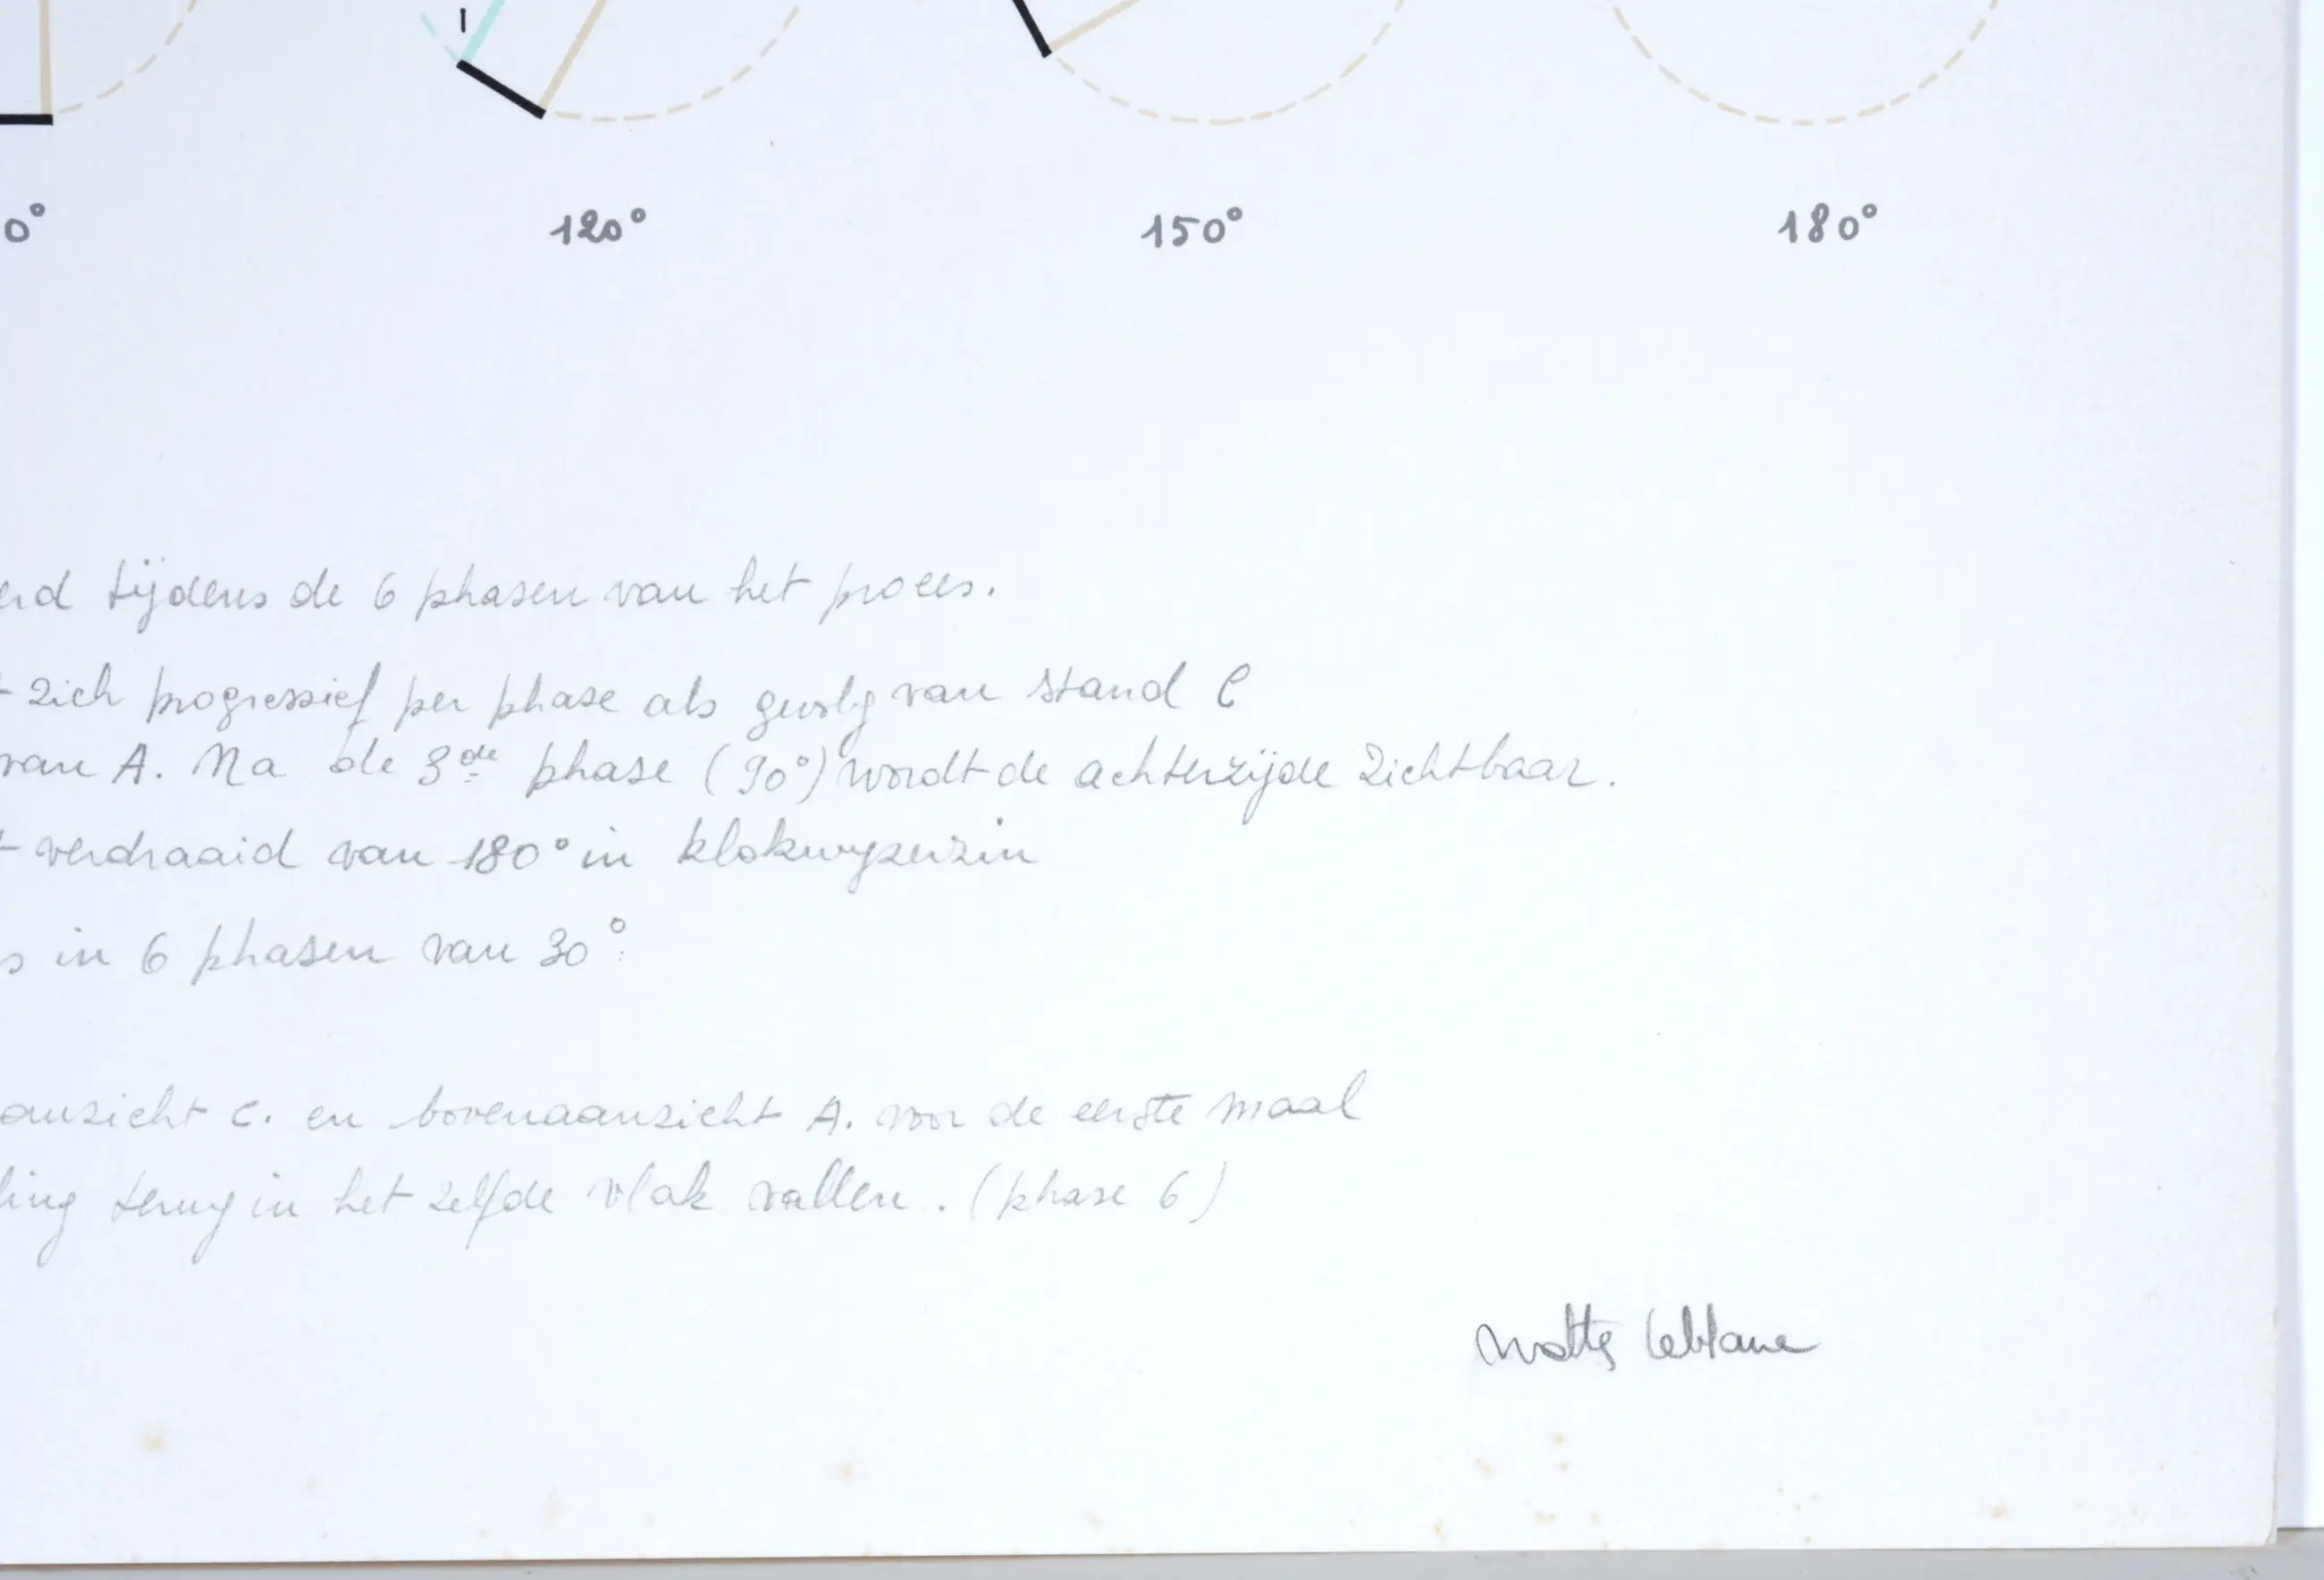 0° 120° 150° 180°
erd tijdens de 6 phasen van het proces.
t zich progressief per phase als gevolg van stand C
van A. Na de 3de phase (90°) wordt de achterzijde zichtbaar.
t verdraaid van 180° in klokwyzerzin
s in 6 phasen van 30°.
anzicht C. en bovenaanzicht A. voor de eerste maal
ling terug in het zelfde vlak vallen. (phase 6)
Walter Leblanc